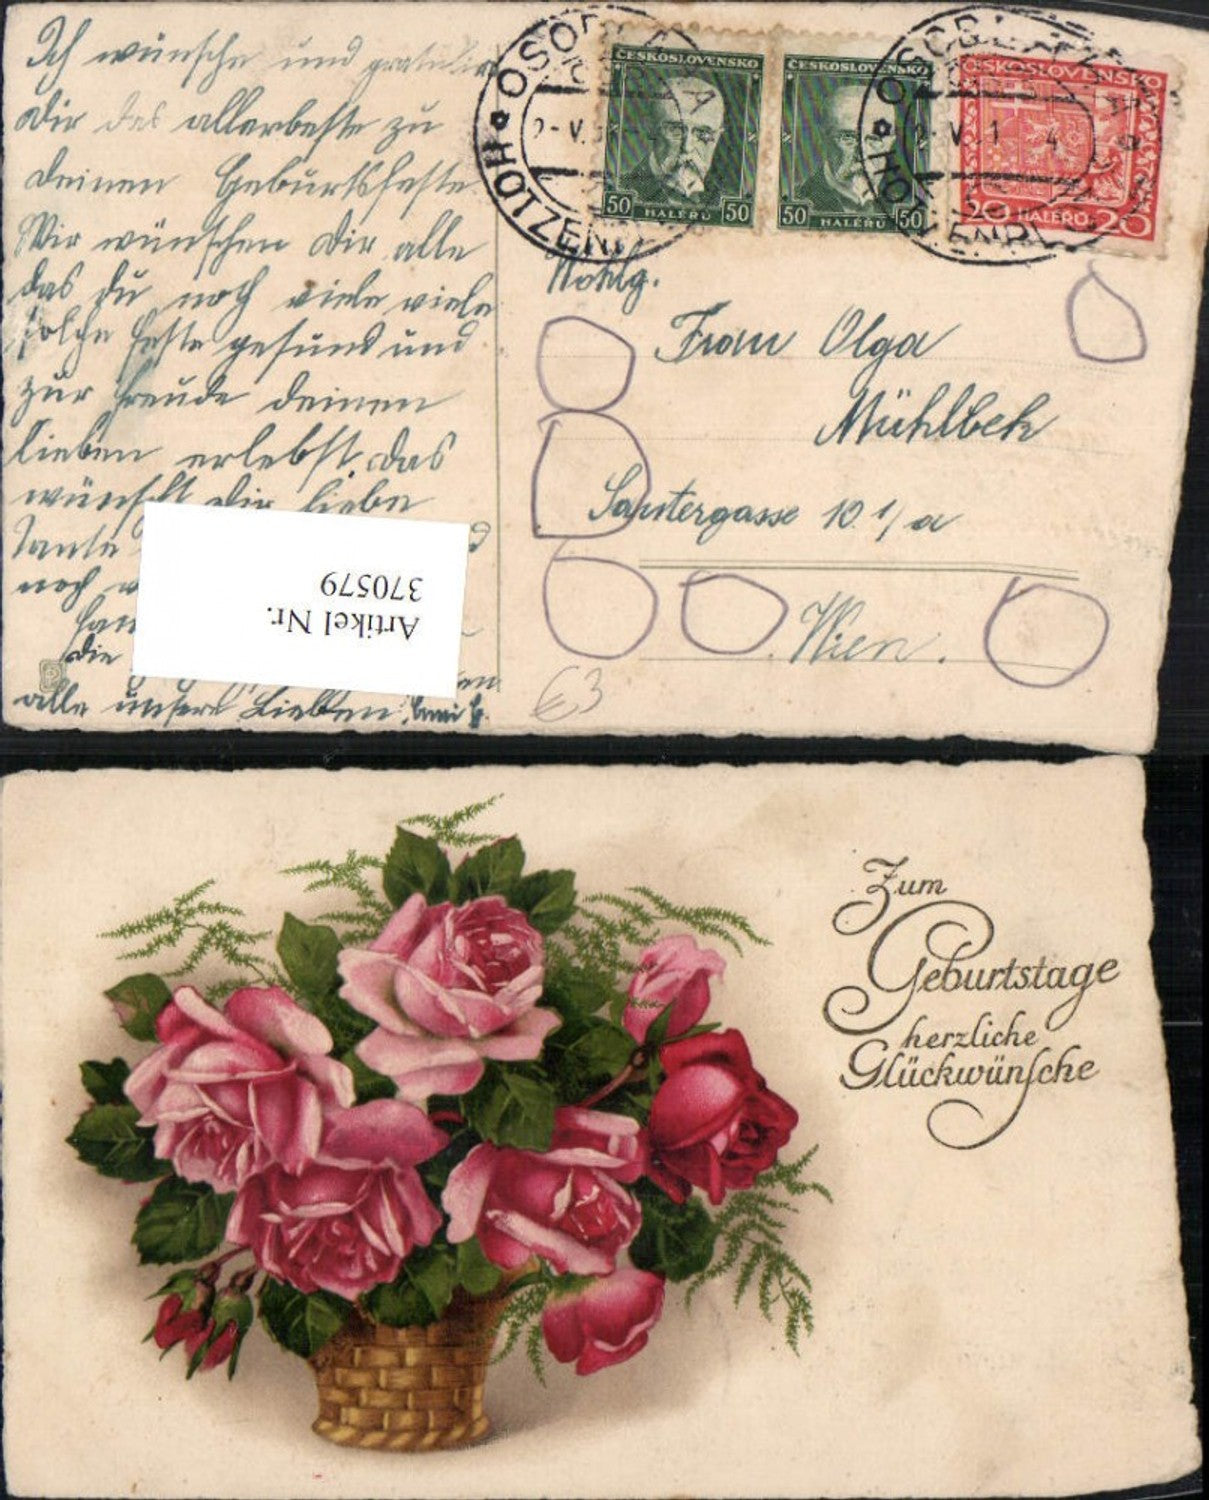 Ich wünsche und gratulire
Dir das allerbeste zu
deinen Geburtsfeste.
Wir wünschen Dir alle
das du noch viele viele
solche feste gesund und
zur freude deinen
lieben erlebst. das
wünscht dir liebe
Tante
noch
die
alle unsere Lieben.
OSOBLAHA
HOTZENPL
ČESKOSLOVENSKO
50 HALÉŘŮ 50
ČESKOSLOVENSKO
50 HALÉŘŮ 50
ČESKOSLOVENSKO
20 HALÉŘŮ 20
OSOBLAHA
HOTZENPL
Wohlg.
Frau Olga
Mühlbek
Santergasse 10 1/a
Wien.
Artikel Nr.
370579
€3
Zum
Geburtstage
herzliche
Glückwünsche